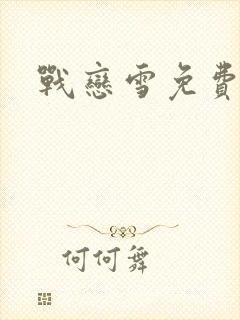 戰戀雪免費
何何舞